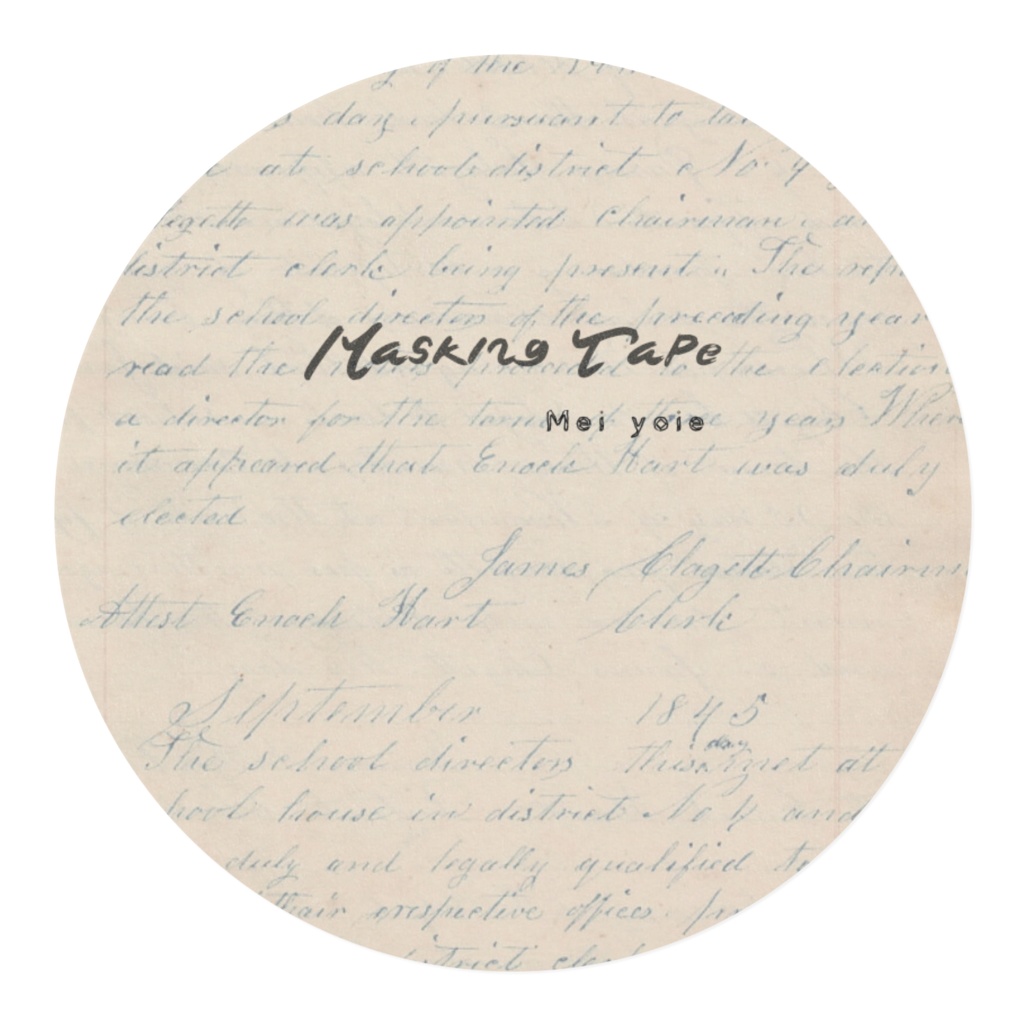 of the
day pursuant to
at school district No. 4
was appointed Chairman
district clerk being present. The
the school directors of the preceding year
Masking Tape
read the to the election
Mei yoie
a director for the term of three years When
it appeared that Enoch Hart was duly
elected
James Clagett Chairm
Attest Enoch Hart Clerk
September 1845
day
The school directors this met at
house in district No 4 and
duly and legally qualified to
their respective offices
district